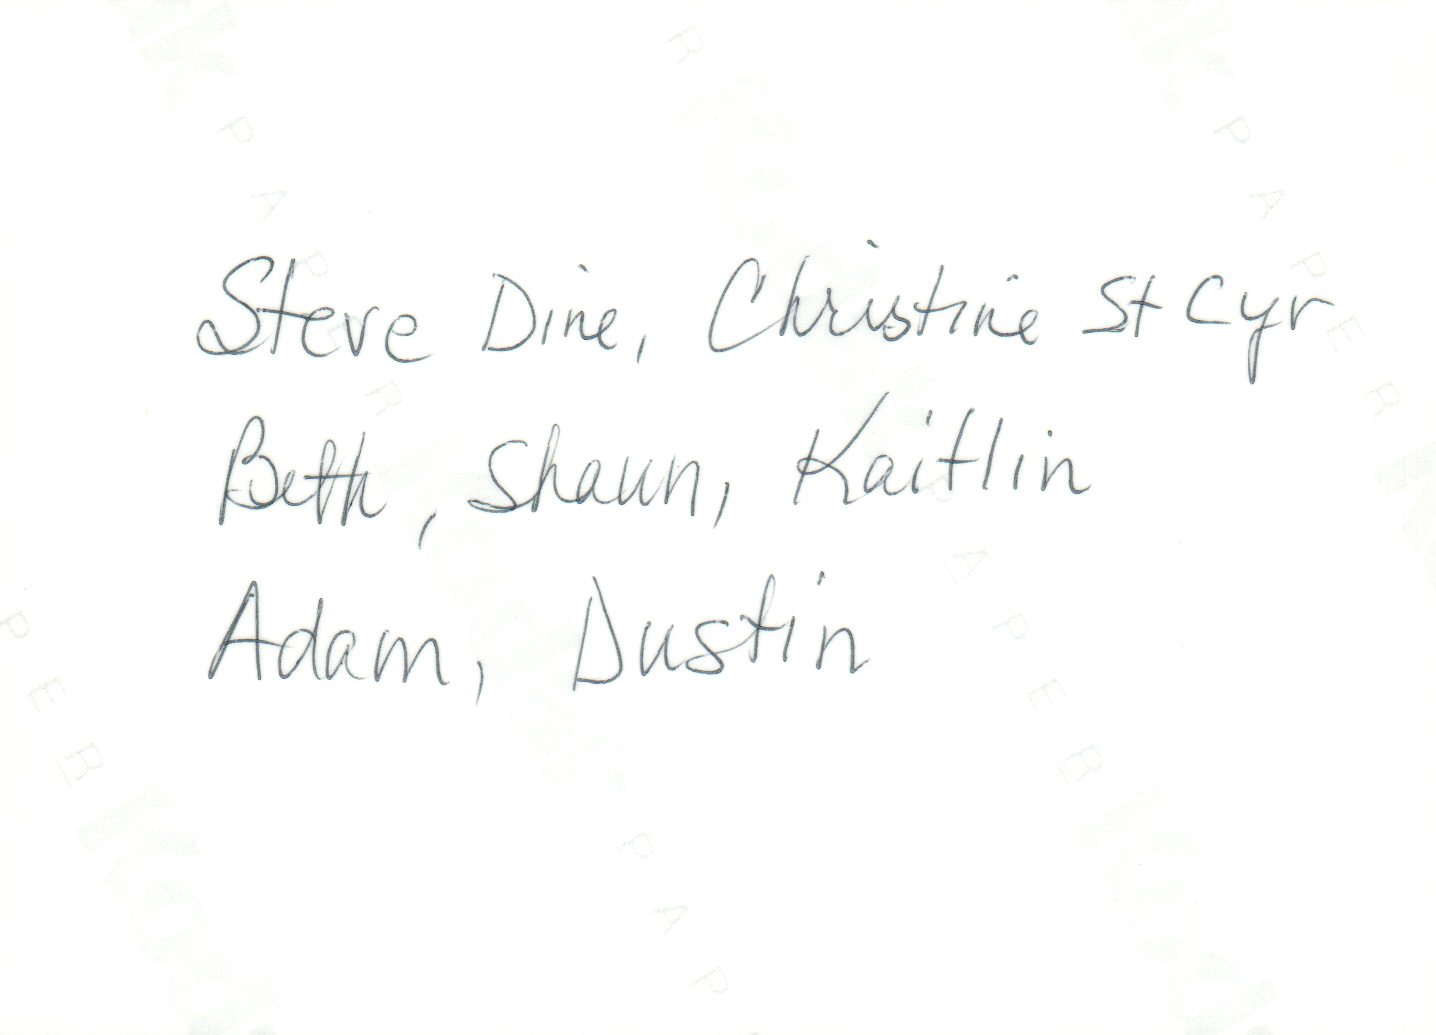 Steve Dine, Christine St Cyr
Beth, Shaun, Kaitlin
Adam, Dustin